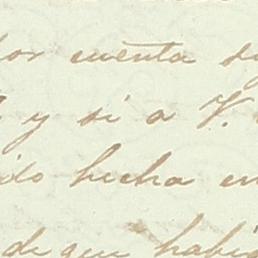 por cuenta su
y si a V.
ido hecha en
de que habi